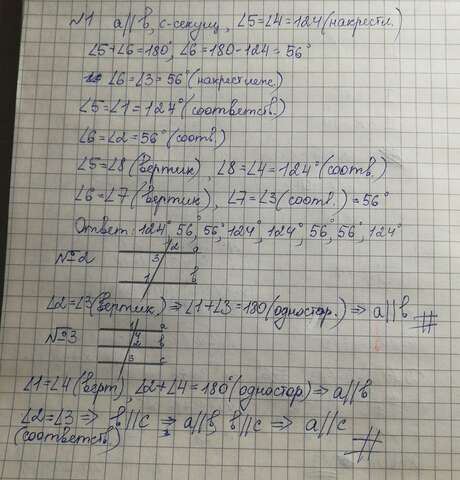 №1 a∥b, c-секущ, ∠5=∠4=124 (накрестл.)
∠5+∠6=180°, ∠6=180-124=56°
∠6=∠3=56° (накрестлеж.)
∠5=∠1=124° (соответств.)
∠6=∠2=56° (соотв.)
∠5=∠8 (вертик), ∠8=∠4=124° (соотв.)
∠6=∠7 (вертик), ∠7=∠3 (соотв.)=56°
Ответ: 124°, 56°, 56°, 124°, 124°, 56°, 56°, 124°
№2
2 a
3
1 b
∠2=∠3 (вертик) ⇒ ∠1+∠3=180 (одностор.) ⇒ a∥b #
№3
1 a
4
2 b
3 c
∠1=∠4 (верт), ∠2+∠4=180° (одностор) ⇒ a∥b
∠2=∠3 ⇒ b∥c ⇒ a∥b, b∥c ⇒ a∥c
(соответств) #